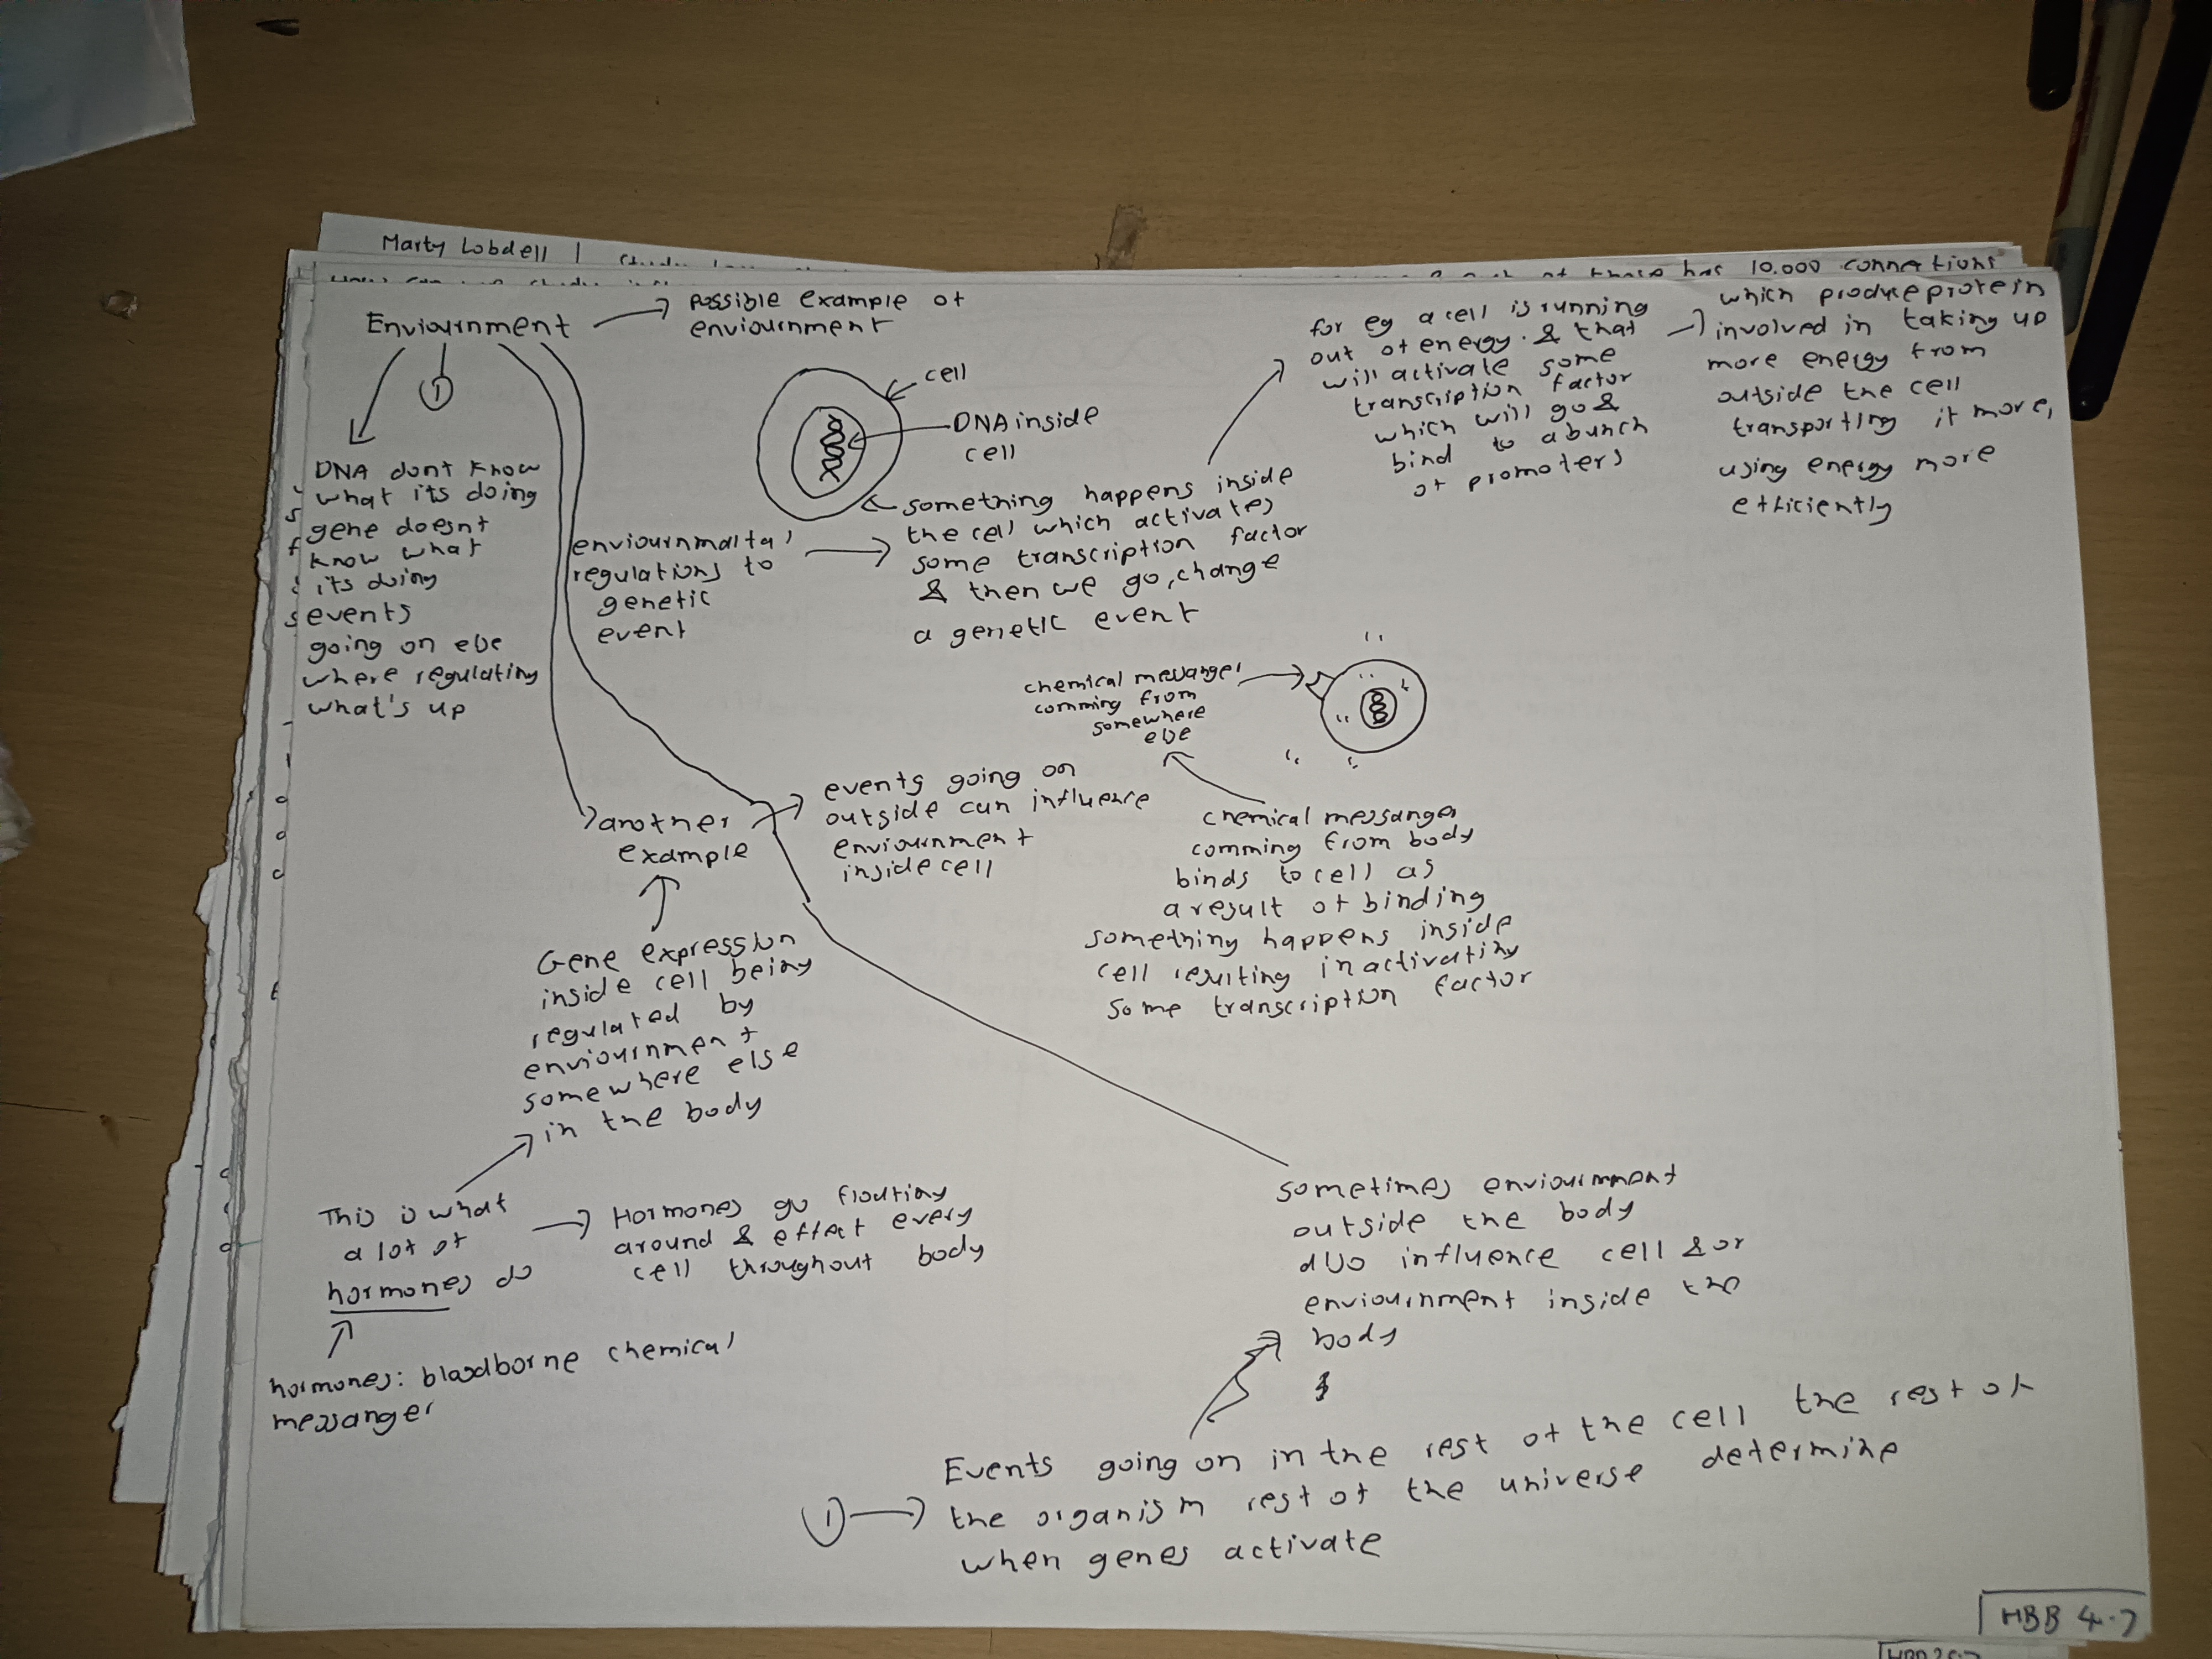 Marty Lobdell |
has 10,000 connections
Enviournment
possible example of
enviournment
1
DNA dont know
what its doing
gene doesnt
know what
its doing
events
going on else
where regulating
what's up
cell
DNA inside
cell
enviournmantal
regulations to
genetic
event
something happens inside
the cell which activates
some transcription factor
& then we go, change
a genetic event
for eg a cell is running
out of energy. & that
will activate some
transcription factor
which will go &
bind to a bunch
of promoters
which produce protein
involved in taking up
more energy from
outside the cell
transporting it more,
using energy more
efficiently
chemical messanger
comming from
somewhere
else
another
example
events going on
outside can influence
enviournment
inside cell
chemical messanger
comming from body
binds to cell as
a result of binding
something happens inside
cell resulting in activating
some transcription factor
Gene expression
inside cell being
regulated by
enviournment
somewhere else
in the body
This is what
a lot of
hormones do
Hormones go floating
around & effect every
cell throughout body
hormones: bloodborne chemical
messanger
sometimes enviournment
outside the body
also influence cell & or
enviournment inside the
body
1
Events going on in the rest of the cell the rest of
the organism rest of the universe determine
when genes activate
HBB 4.7